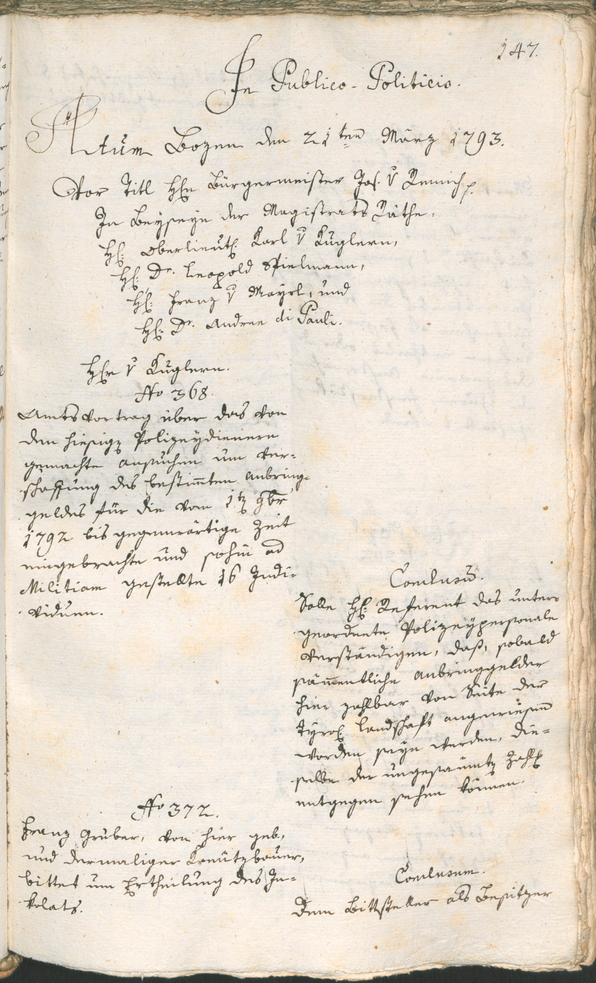 147.
In Publico-Politicis.
Actum Bozen den 21ten März 1793.
Vor Titl Hr Bürgermeister Jos. v Remich.
In Beyseyn der Magistrats Räthe,
H: Oberlieut: Karl v Kuglern,
H: Dr. Leopold Spielmann,
H: Franz v Mayrl, und
H: Dr. Andree di Pauli.
Hr v Kuglern.
No 368.
Amtsvortrag über das von
den hiesigen Polizeydienern
gemachte Ansuchen um Ver-
schaffung des bestimmten Anbring-
geldes für die vom 1t 9br
1792 bis gegenwärtige Zeit
eingebrachte und sohin ad
Militiam gestellte 16 Indi-
viduen.
Conclusum.
Solle H: Referent das unter-
geordnete Polizeypersonale
verständigen, daß, sobald
sämmentliche Anbringgelder
hier zahlbar von Seite der
Tyrol Landschaft angewiesen
worden seyn werden, die-
selbe der ungesäumten Zahlg
entgegen sehen können.
No 372.
Franz Gruber, von hier geb,
und dermaliger Kreutzbauer,
bittet um Ertheilung des In-
kolats.
Conclusum.
Dem Bittsteller als Besitzer